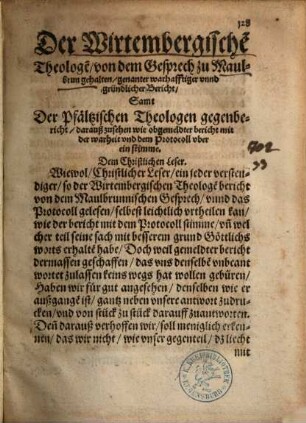 328
Der Wirtembergischē
Theologē / von dem Gesprech zu Maul-
brun gehalten / genanter warhafftiger vnnd
gründlicher Bericht /
Samt
Der Pfältzischen Theologen gegenbe-
richt / darauß zusehen wie obgemeldter bericht mit
der warheit vnd dem Protocoll vber
ein stimme.
Dem Christlichen Leser.
Wiewol / Christlicher Leser / ein jeder versten-
diger / so der Wirtembergischen Theologē bericht
von dem Maulbrunnischen Gesprech / vnnd das
Protocoll gelesen / selbest leichtlich vrtheilen kan /
wie der bericht mit dem Protocoll stimme / vñ wel
cher teil seine sach mit besserem grund Göttlichs
worts erhaltē habe / Doch weil gemeldter bericht
dermassen geschaffen / das vns denselbē vnbeant
wortet zulassen keins wegs hat wollen gebüren /
Haben wir für gut angesehen / denselben wie er
außgangē ist / gantz neben vnsere antwort zudru-
cken / vnd von stück zu stück darauff zuantworten.
Deñ darauß verhoffen wir / soll meniglich erken-
nen / das wir nicht / wie vnser gegenteil / dz liecht
mit